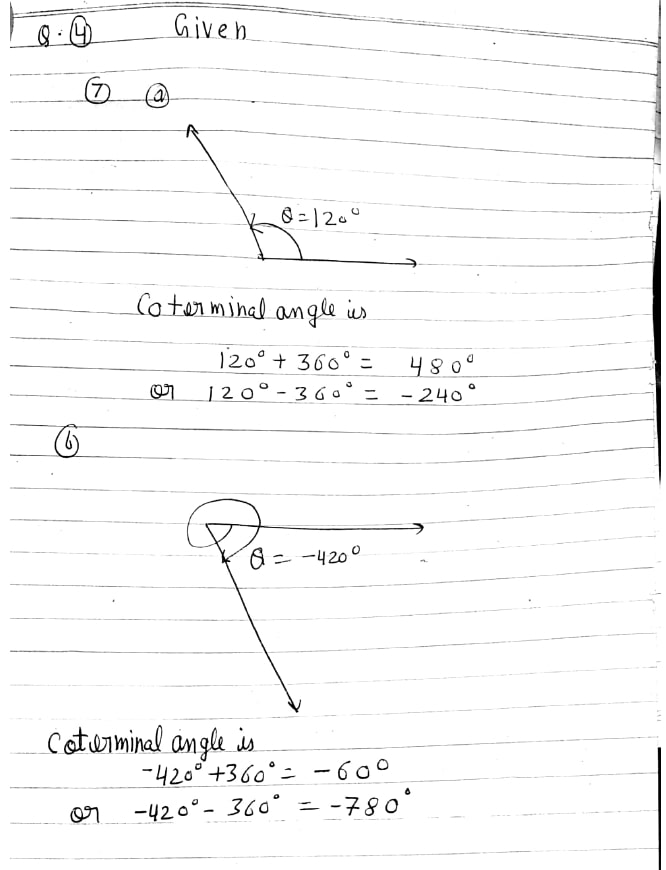 Q.④ Given
⑦ ⓐ
θ = 120°
Coterminal angle is
120° + 360° = 480°
or 120° - 360° = -240°
ⓑ
θ = -420°
Coterminal angle is
-420° + 360° = -60°
or -420° - 360° = -780°